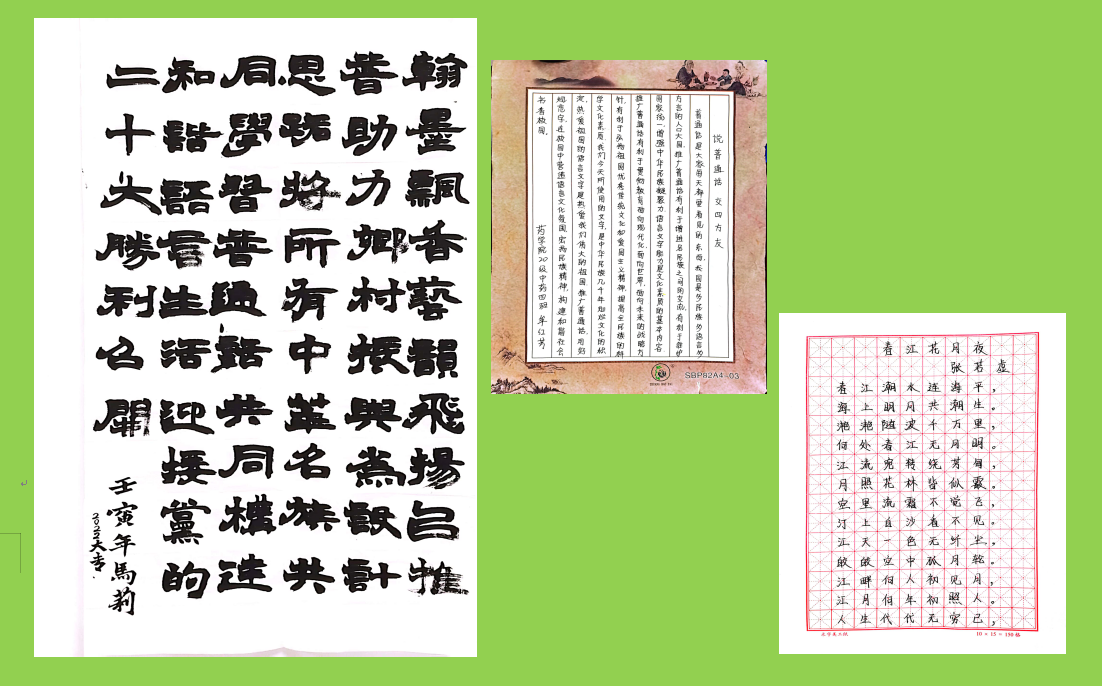 翰墨飄香藝韻飛揚㠯推
普助力鄉村振興為設計
思路将所有中華名族共
同學習普通話共同構建
和諧語言生活迎接黨的
二十大勝利召開
壬寅年馬莉
2022大吉.
说普通话 交四方友
普通话是大家每天都要看见的东西,我国是多民族多语言多
方言的人口大国,推广普通话有利于增进各民族之间的交流,有利于维护
国家统一,增强中华民族凝聚力,语言文字能力是文化素质的基本内容
推广普通话有利于贯彻教育面向现代化,面向世界,面向未来的战略方
针,有利于弘扬祖国优秀传统文化和爱国主义精神,提高全民族的科
学文化素质,我们今天所使用的文字,是中华民族几千年灿烂文化的积
淀,热爱祖国的语言文字是热爱我们伟大的祖国推广普通话,用
规范字,在校园中营造语言文化氛围,宏扬民族精神,构建和谐社会
书香校园。
药学院20级中药四班
SBP82A4-03
春江花月夜
张若虚
春江潮水连海平,
海上明月共潮生。
滟滟随波千万里,
何处春江无月明。
江流宛转绕芳甸,
月照花林皆似霰。
空里流霜不觉飞,
汀上白沙看不见。
江天一色无纤尘,
皎皎空中孤月轮。
江畔何人初见月,
江月何年初照人。
人生代代无穷已,
10×15=150格